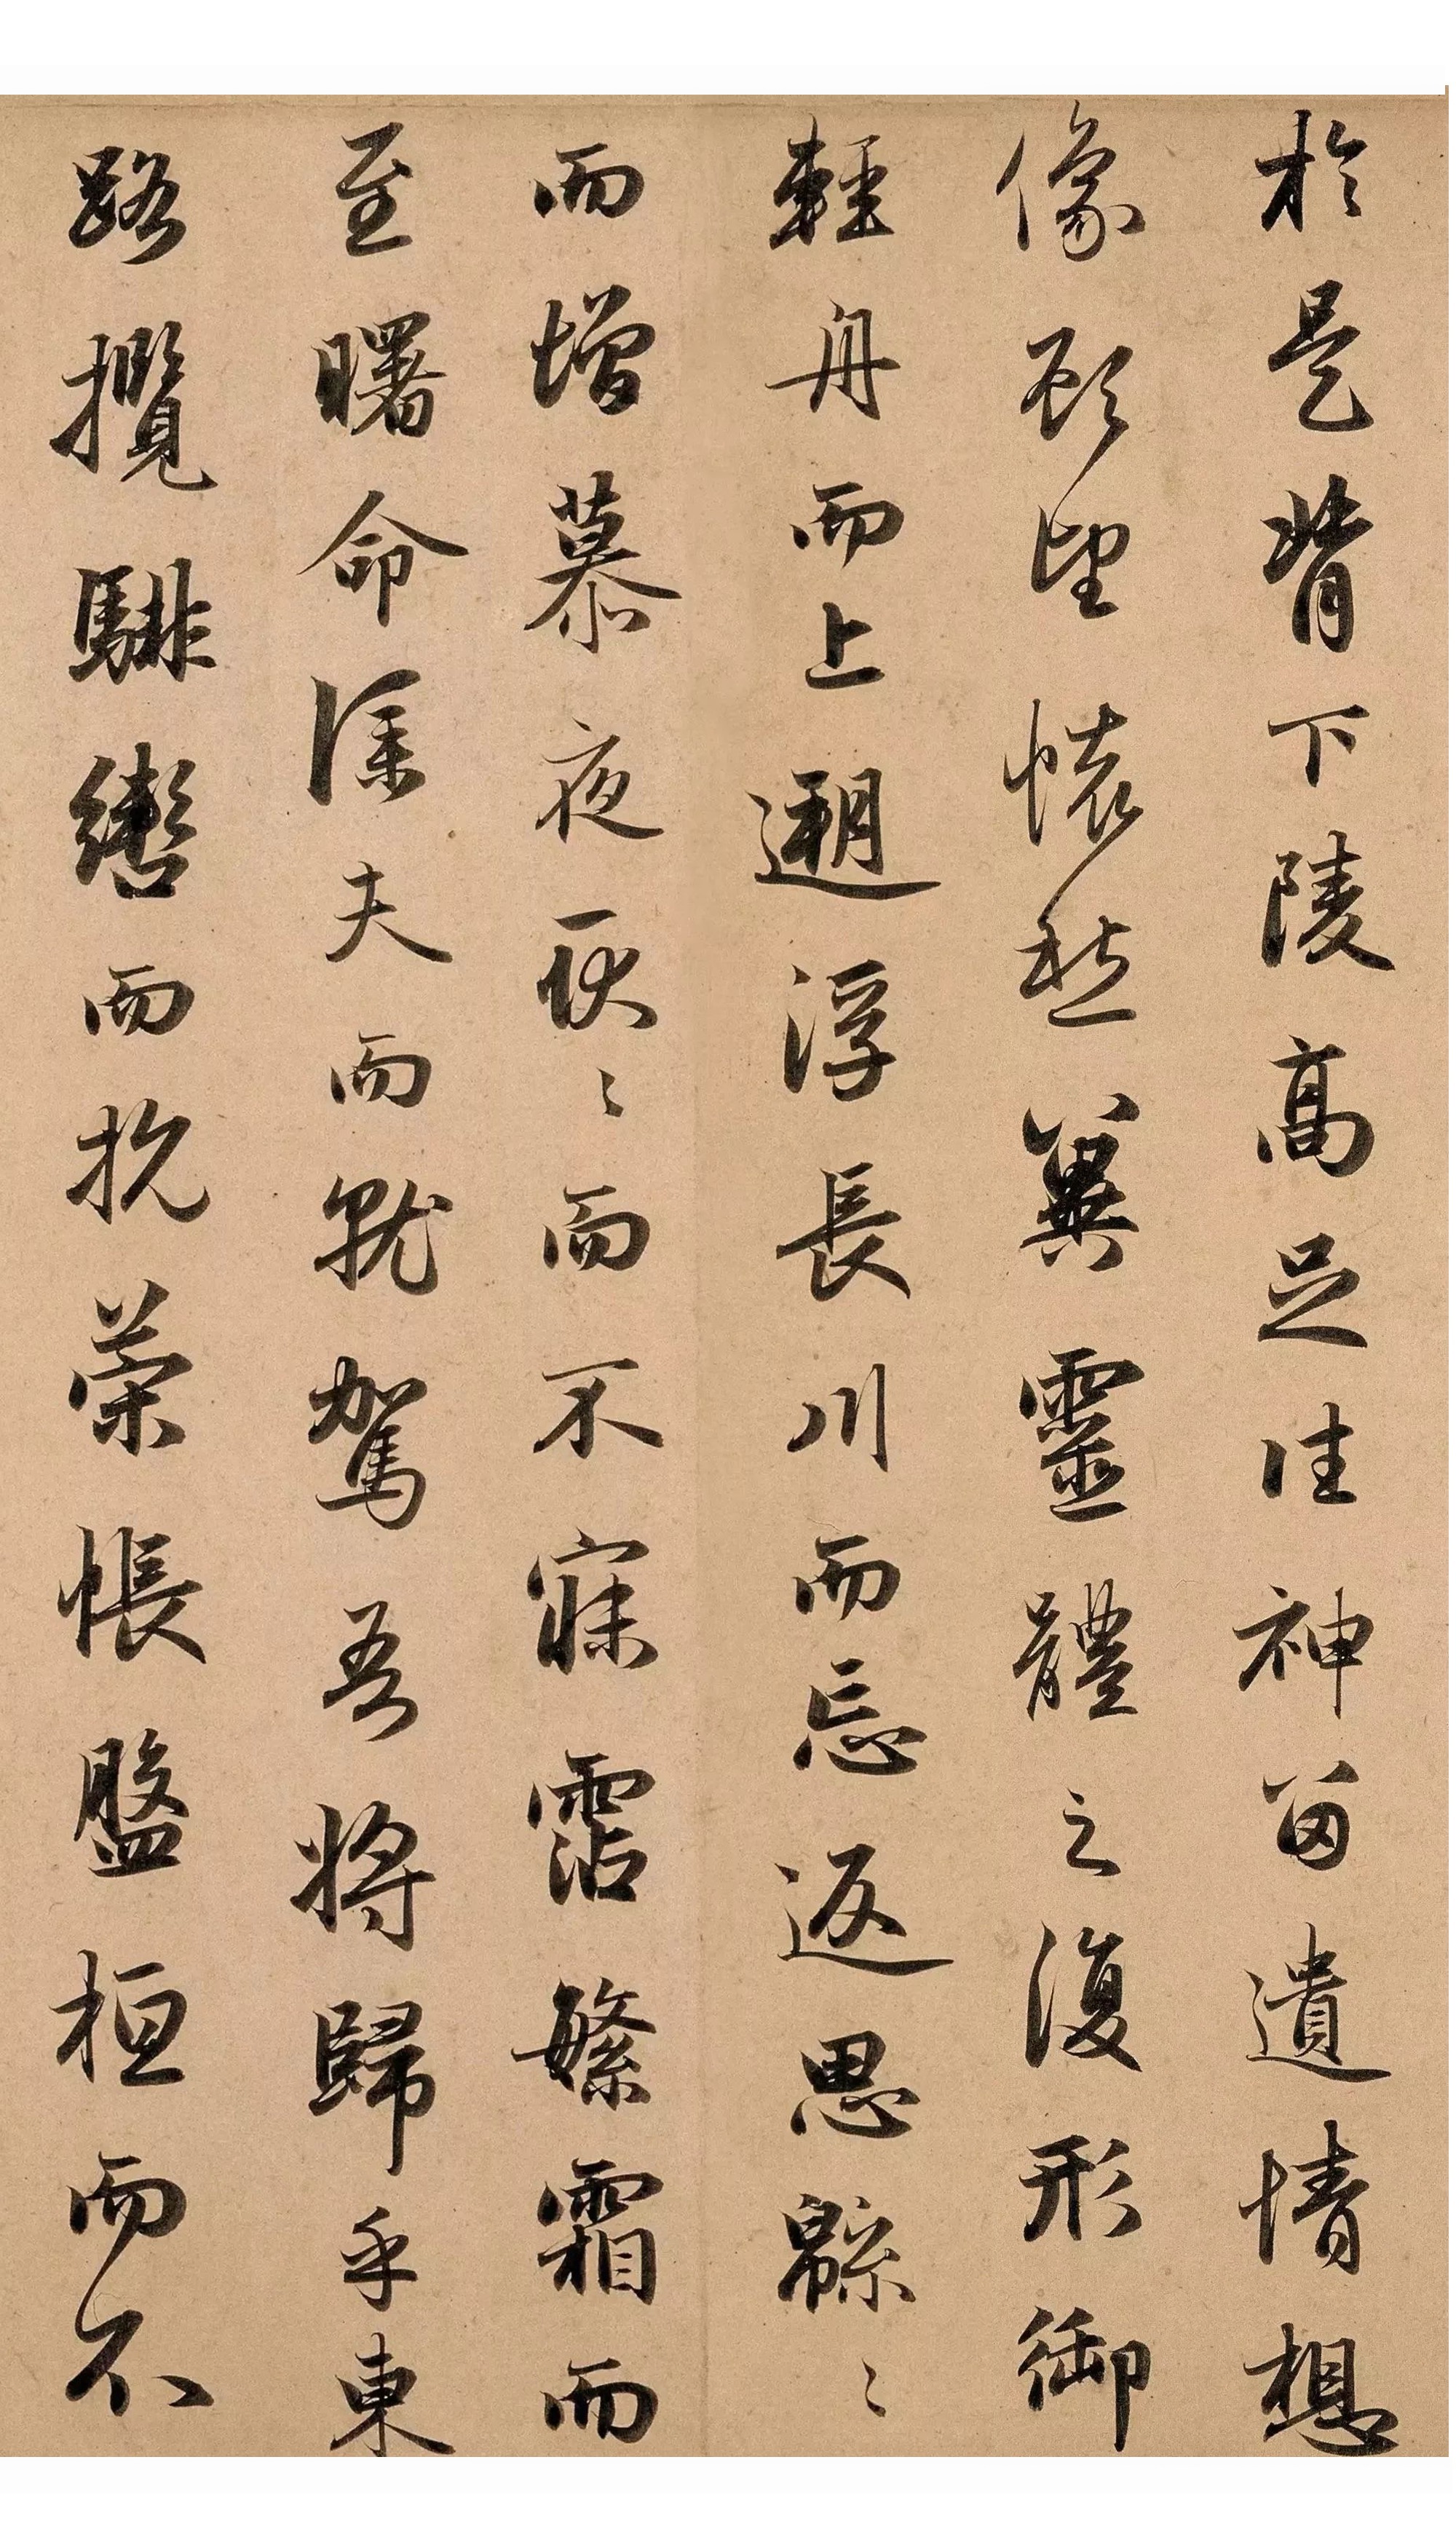 於是背下陵高足往神留遺情想
像顧望懷愁冀靈體之復形御
輕舟而上遡浮長川而忘返思緜〻
而增慕夜耿〻而不寐霑繁霜而
至曙命僕夫而就駕吾將歸乎東
路攬騑轡而抗策悵盤桓而不